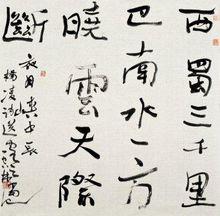 西蜀三千里
巴南水一方
曉雲天際
斷
夜月峽中長
楊凌詩送